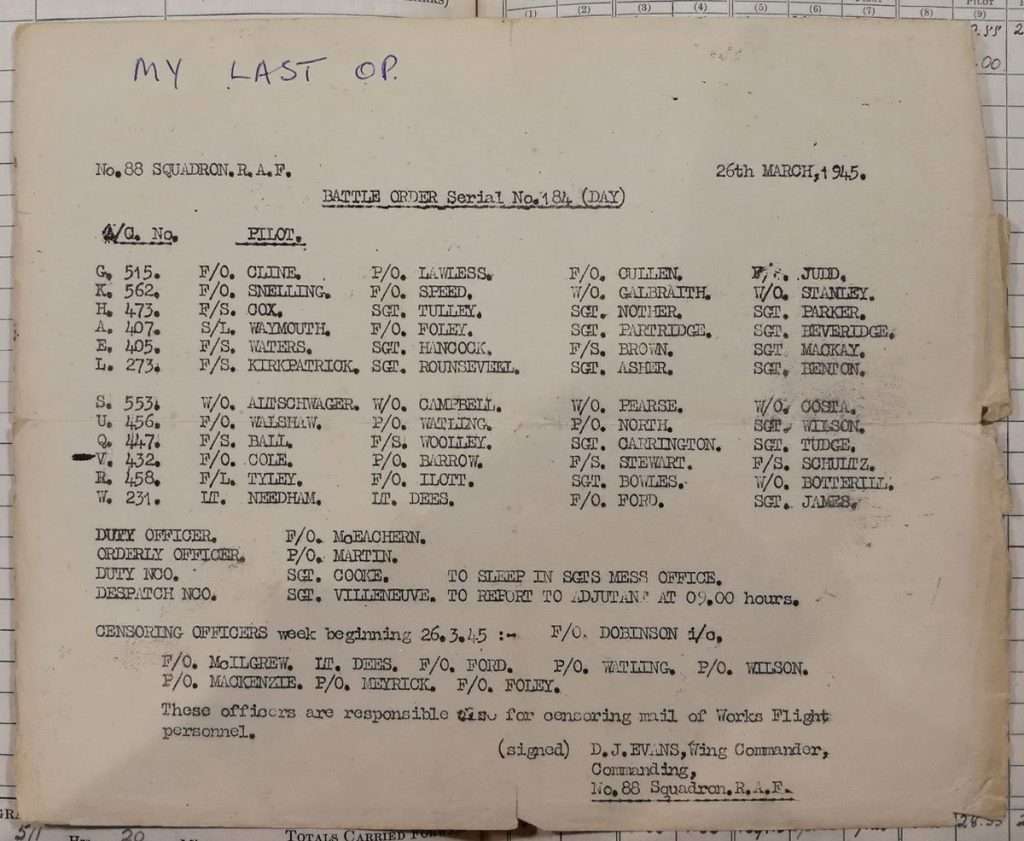 (1) (2) (3) (4) (5) (6) (7) (8) (9)
.00
MY LAST OP.
No.88 SQUADRON.R.A.F. 26th MARCH,1945.
BATTLE ORDER Serial No.184 (DAY)
A/C. No. PILOT.
G. 515. F/O. CLINE. P/O. LAWLESS. F/O. CULLEN. JUDD.
K. 562. F/O. SNELLING. F/O. SPEED. W/O. GALBRAITH. W/O. STANLEY.
H. 473. F/S. COX. SGT. TULLEY. SGT. NOTHER. SGT. PARKER.
A. 407. S/L. WAYMOUTH. F/O. FOLEY. SGT. PARTRIDGE. SGT. BEVERIDGE.
E. 405. F/S. WATERS. SGT. HANCOCK. F/S. BROWN. SGT. MACKAY.
L. 273. F/S. KIRKPATRICK. SGT. ROUNSEVELL. SGT. ASHER. SGT. BENTON.
S. 553. W/O. ALTSCHWAGER. W/O. CAMPBELL. W/O. PEARSE. W/O. COSTA.
U. 456. F/O. WALSHAW. P/O. WATLING. P/O. NORTH. SGT. WILSON.
Q. 447. F/S. BALL. F/S. WOOLLEY. SGT. CARRINGTON. SGT. TUDGE.
V. 432. F/O. COLE. P/O. BARROW. F/S. STEWART. F/S. SCHULTZ.
R. 458. F/L. TYLEY. F/O. ILOTT. SGT. BOWLES. W/O. BOTTERILL.
W. 231. LT. NEEDHAM. LT. DEES. F/O. FORD. SGT. JAMES.
DUTY OFFICER. F/O. McEACHERN.
ORDERLY OFFICER. P/O. MARTIN.
DUTY NCO. SGT. COOKE. TO SLEEP IN SGTS MESS OFFICE.
DESPATCH NCO. SGT. VILLENEUVE. TO REPORT TO ADJUTANT AT 09.00 hours.
CENSORING OFFICERS week beginning 26.3.45 :- F/O. DOBINSON i/c.
F/O. McILGREW. LT. DEES. F/O. FORD. P/O. WATLING. P/O. WILSON.
P/O. MACKENZIE. P/O. MEYRICK. F/O. FOLEY.
These officers are responsible also for censoring mail of Works Flight
personnel.
(signed) D.J.EVANS,Wing Commander,
Commanding,
No.88 Squadron.R.A.F.
511 20 TOTALS CARRIED